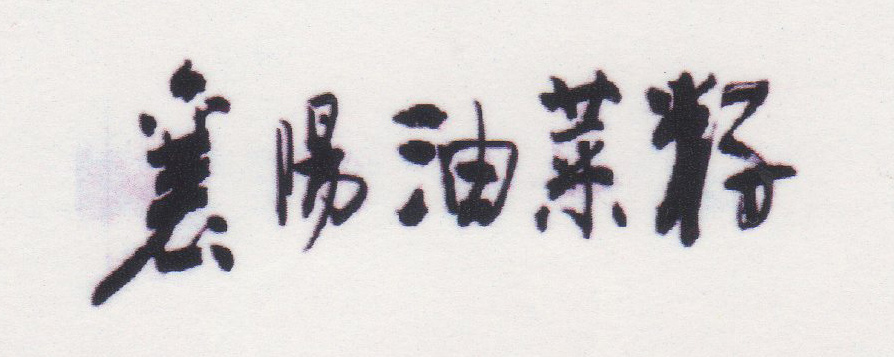 襄陽油菜籽